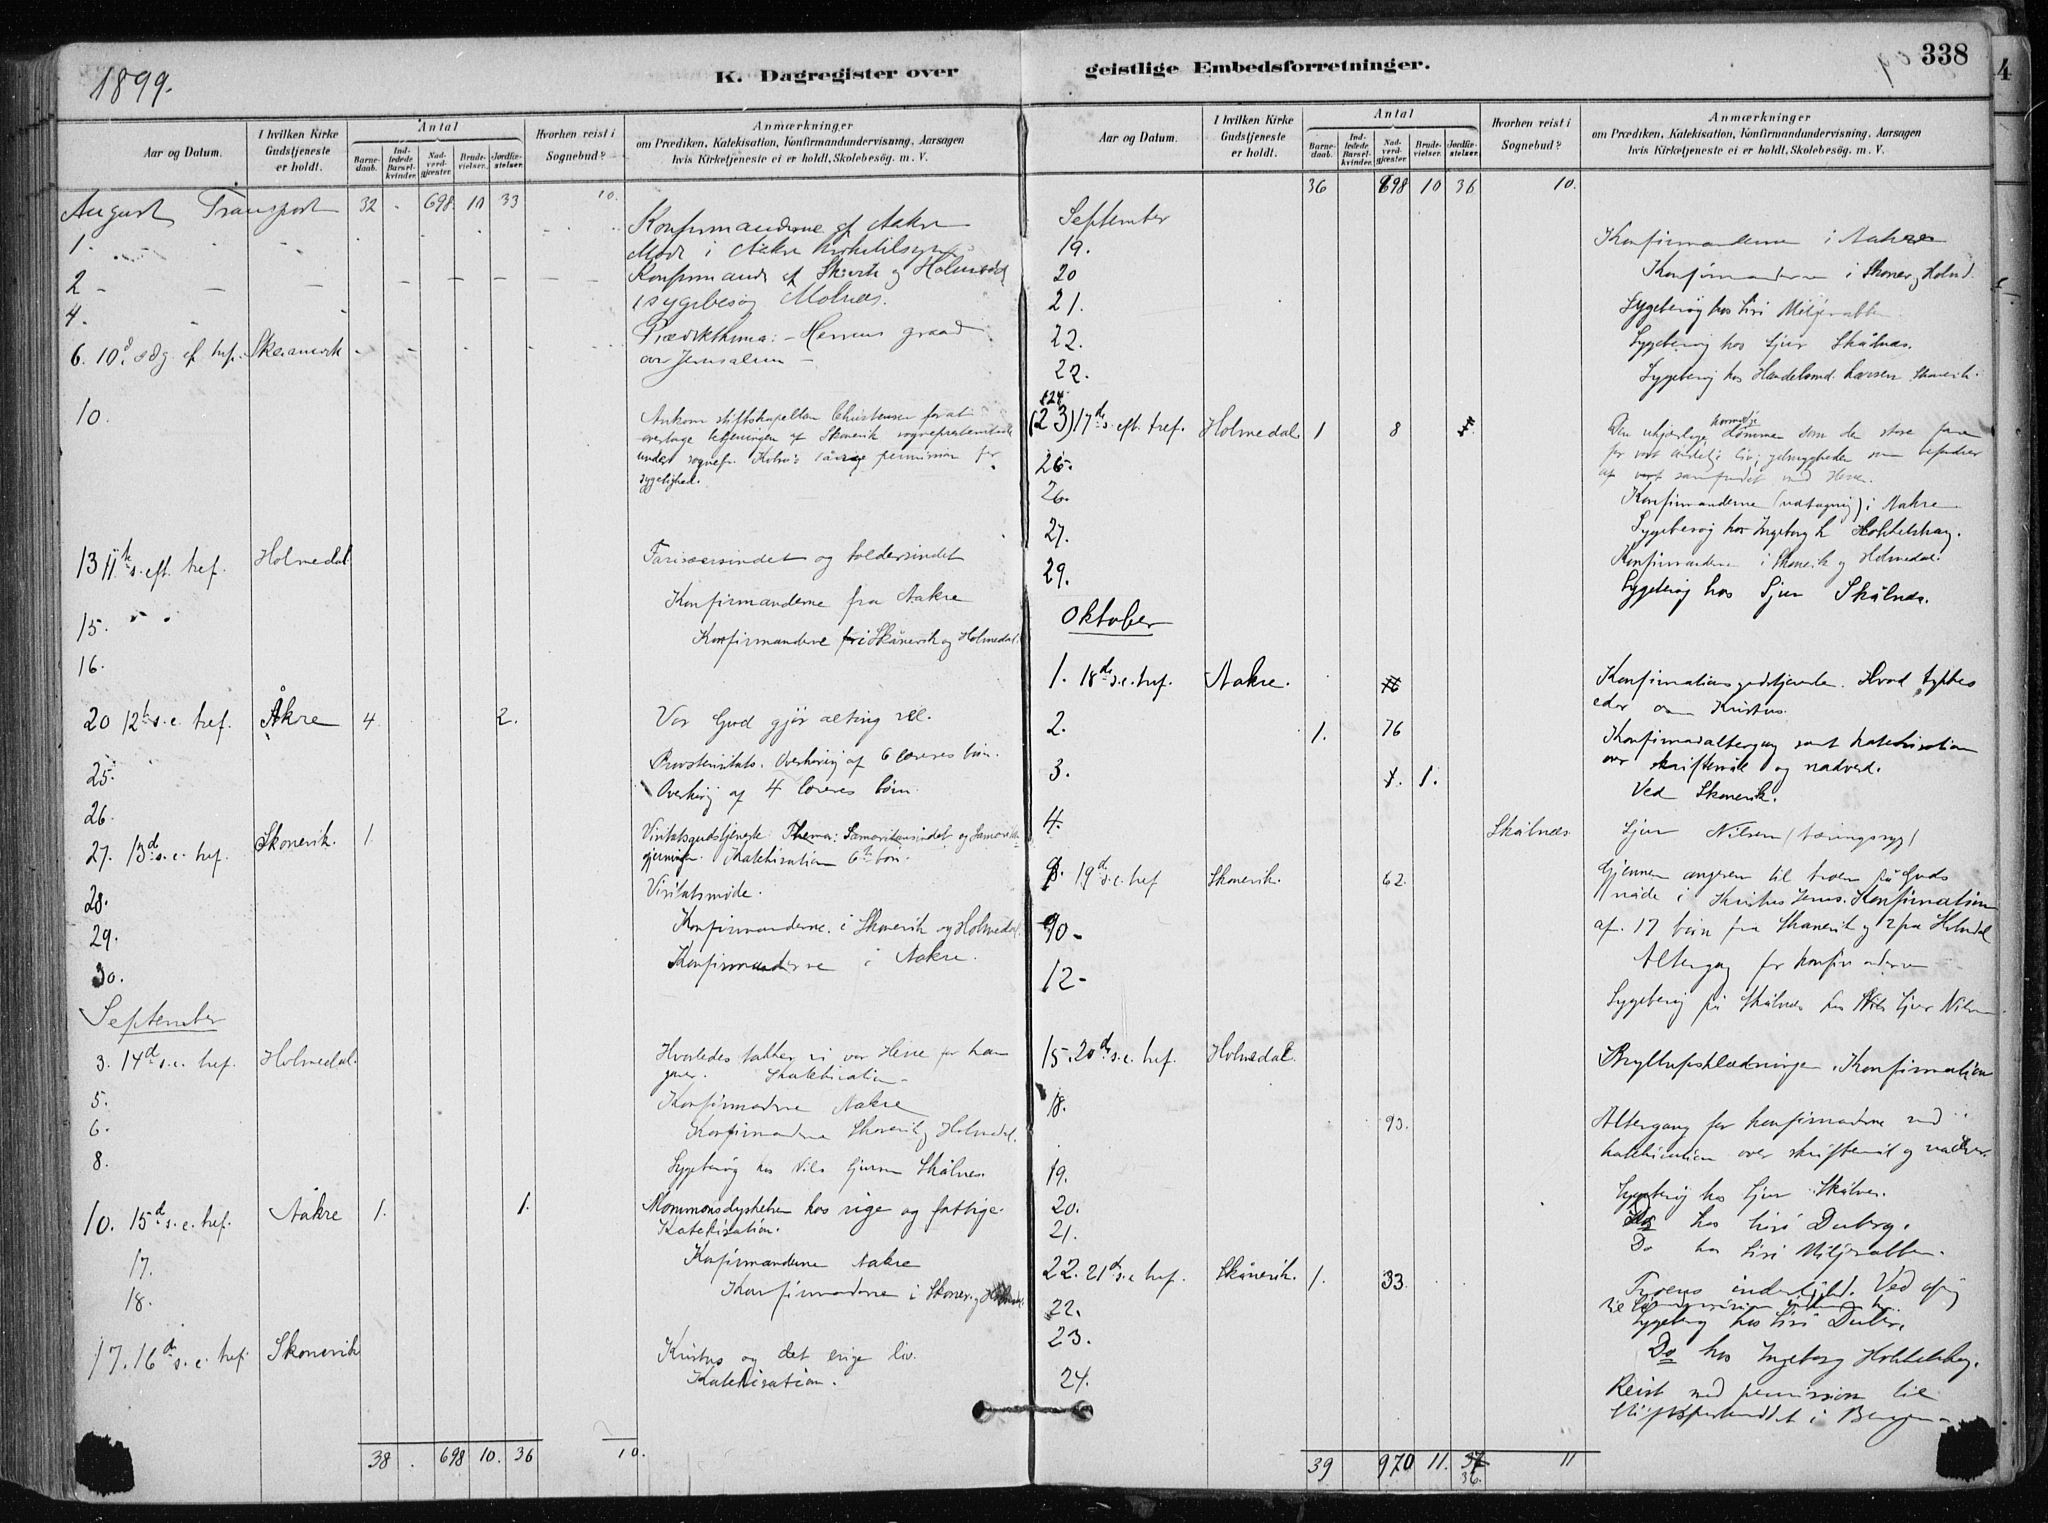 1899.
K. Dagregister over
Aar og Datum.
I hvilken Kirke Gudstjeneste er holdt.
Antal
Barne-daab.
Ind-ledede Barsel-kvinder.
Nad-verd-gjæster.
Brude-vielser.
Jordfæ-stelser.
Hvorhen reist i Sognebud?
Anmærkninger
om Prædiken, Katekisation, Konfirmandundervisning, Aarsagen
hvis Kirketjeneste ei er holdt, Skolebesøg. m. V.
August Transport 32 . 698. 10 33 10.
1. Konfirmanderne af Aakre
Møde i Aakre
2 Konfirmand. af og
4. sygebesøg Molnes.
6. 10d. Herrens graad
over Jerusalem
10. Ankom stiftskapellan Christensen for at
overtage betjeningen af Skonevik sogneprestembede
under sognepr. permission for
sygelighed.
13 11te s. eft. tref. Holmedal Farisæersindet og toldersindet
15. Konfirmanderne fra Aakre
16. Konfirmanderne i Skånevik og Holmedal.
20 12te s. e. tref. Åkre 4. 2. Vor Gud gjør alting vel.
25. Overhøring af 6 læreres børn.
26. Overhøring af 4 læreres børn
27. 13d. s. e. tref. Skonevik. 1 Visitatsgudstjeneste. Thema: Samaritansindet og
gjerningen. Katekisation 6te bøn.
28. Visitatsmøde.
29. Konfirmanderne i Skonevik og Holmedal.
30. Konfirmanderne i Aakre.
September
3. 14d. s. e. tref. Holmedal. Hvorledes takker vi vor Herre for hans
gaver. Katekisation.
5. Konfirmanderne Aakre
6. Konfirmanderne Skonevik og Holmedal.
8. Sygebesøg hos Nils Skålnes
10. 15d. s. e. tref. Aakre 1. 1. Mammonsdyrkelsen hos rige og fattige.
Katekisation.
17. Konfirmanderne Aakre
18. Konfirmanderne i Skonev. og
17. 16d. s. e. tref. Skonevik Kristus og det evige liv.
Katekisation.
38 . 698 10. 36 10.
geistlige Embedsforretninger.
338
Aar og Datum.
I hvilken Kirke Gudstjeneste er holdt.
Antal
Barne-daab.
Ind-ledede Barsel-kvinder.
Nad-verd-gjæster.
Brude-vielser.
Jordfæ-stelser.
Hvorhen reist i Sognebud?
Anmærkninger
om Prædiken, Katekisation, Konfirmandundervisning, Aarsagen
hvis Kirketjeneste ei er holdt, Skolebesøg. m. V.
36 698 10 36 10.
September
19. Konfirmanderne i Aakre
20 Konfirmanderne i Skonev. og Holmd.
21. Sygebesøg hos Siri
22. Sygebesøg hos Sjur Skålnes.
22. Sygebesøg hos Handelsmd. Larsen Skonevik.
24
(23) 17de s. eft. tref. Holmedal 1 8 Den ukjærlige dømmen som den store fare
for vort åndelige liv;
af vort samfundet med Herren.
25.
26. Konfirmanderne (udtagning) i Aakre
27. Sygebesøg hos Ingeborg
Konfirmanderne i Skonevik og Holmedal.
29. Sygebesøg hos Sjur Skålnes.
Oktober
1. 18de s. e. tref. Aakre. Konfirmationsgudstjeneste. Hvad tykkes
eder om Kristus.
2. 1. 76 Konfirmandaltergang samt katekisation
over skriftemåle og nadverd.
3. 1. 1. Ved Skonevik.
4. Skålnes Sjur Nilsen (tæringssyg)
8. 19d. s. e. tref Skonevik. 62. Gjennem angeren til troen på Guds
nåde i Kristus Jesus. Konfirmation
af 17 børn fra Skonevik og 2 fra Holmdal
10- Altergang for konfirmanderne
12- Sygebesøg på Skålnes hos Sjur Nilsen
15. 20de s. e. tref. Holmedal. Bryllupsklædningen. Konfirmation
18. 93. Altergang for konfirmanderne med
katekisation over skriftemål og nadver.
19. Sygebesøg hos Sjur Skålnes.
20. Do hos Siri Duberg.
21. Do hos Siri
22. 21d. s. e. tref. Skånevik. 1. 33. Troens inderlighed.
22. Sygebesøg hos Siri
23. Do hos Ingeborg
24. Reist med permission til
i Bergen
39 970 11. 37 11
36.